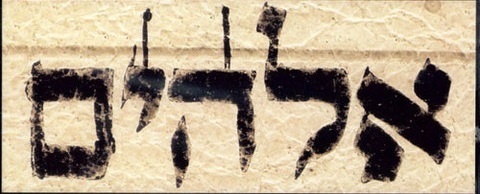 אלהים